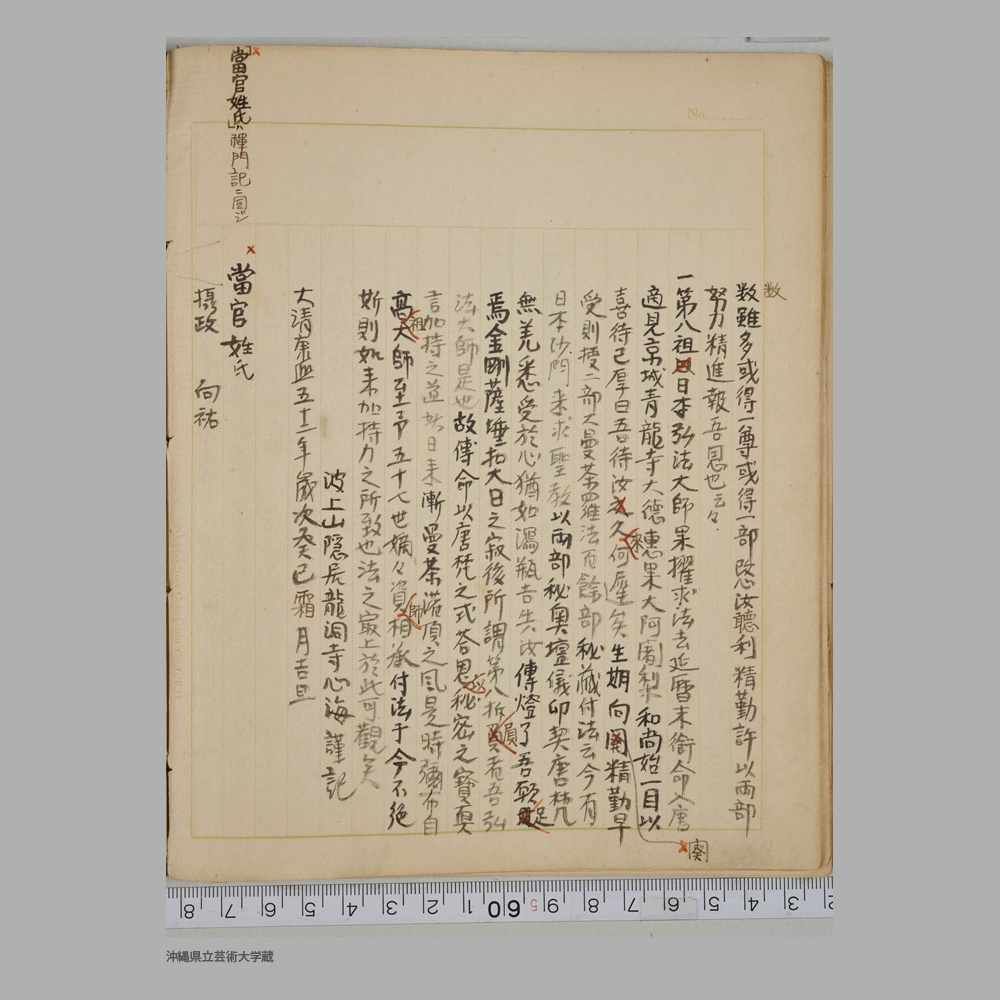 No.
数
数雖多或得一尊或得一部愍汝聴利精勤許以両部
努力精進報吾恩也云々
一第八祖日本弘法大師果擢求法去延暦末銜命入唐
適見京城青龍寺大徳恵果大阿闍梨和尚始一目以
喜待已厚曰吾待汝久何遅矣生期向闋精勤早
来
癸
受則授二部大曼荼羅法百餘部秘蔵付法云今有
日本沙門来求聖教以両部秘奥壇儀印契唐梵
無差悉受於心猶如瀉瓶吉失汝傳燈了吾願
足
焉金剛薩埵扣大日之寂後所謂第八折負者吾弘
法大師是也故傳命以唐梵之式荅恩秘密之寶真
言加持之道始日来漸曼荼灌頂之風是時彌布自
高祖大師至予五十七世嫡々資師相承付法于今不絶
斯則如来加持力之所致也法之寂上於此可觀矣
波上山隠居龍洞寺心海謹記
大清康熙五十二年歳次癸巳霜月吉旦
×
當官姓氏
攝政 向祐
×
「當官姓氏」ハ禅門記ニ同ジ
8 7 6 5 4 3 2 1 60 5 9 8 7 6 5 4 3 2
沖縄県立芸術大学蔵